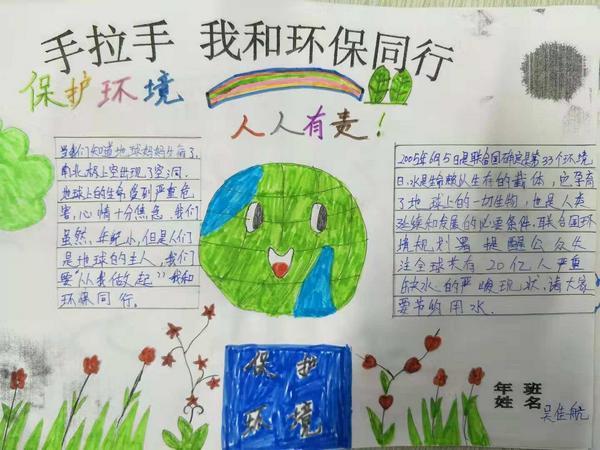 手拉手 我和环保同行
保护环境
人人有责!
当我们知道地球妈妈生病了,
南北极上空出现了空洞,
地球上的生命受到严重危
害,心情十分焦急,我们
虽然,年纪小,但是人们
是地球的主人,我们
要"从我做起"我和
环保同行。
2005年6月5日是联合国确定是第33个环境
日,水是生命赖以生存的载体,它孕育
了地球上的一切生物,也是人类
延续和发展的必要条件。联合国环
境规划署提醒公众关
注全球共有20亿人严重
缺水的严峻现状,请大家
要节约用水。
保护
环境
年 班
姓名
吴佳航